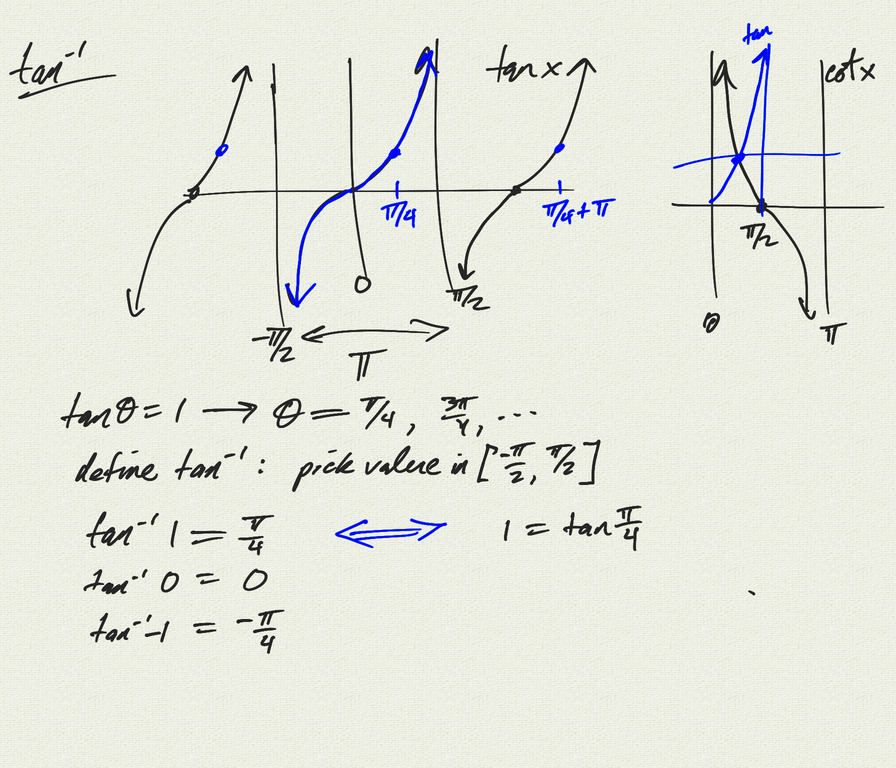 tan⁻¹
tan x
tan
cot x
π/4
π/4+π
π/2
0
π/2
-π/2
π
0
π
tan θ = 1 → θ = π/4, 3π/4, ...
define tan⁻¹: pick value in [-π/2, π/2]
tan⁻¹ 1 = π/4 ⟺ 1 = tan π/4
tan⁻¹ 0 = 0
tan⁻¹ -1 = -π/4